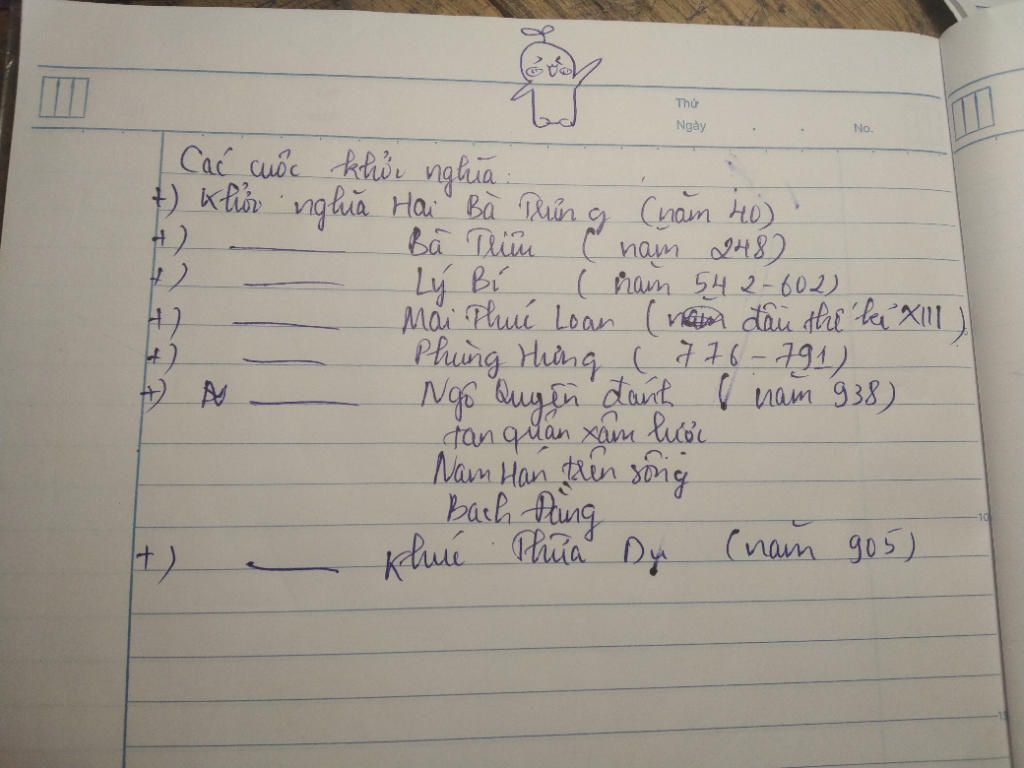 Thứ
Ngày . . No.
Các cuộc khởi nghĩa:
+) Khởi nghĩa Hai Bà Trưng (năm 40)
+) ——— Bà Triệu (năm 248)
+) ——— Lý Bí (năm 542-602)
+) ——— Mai Thúc Loan (đầu thế kỉ XIII)
+) ——— Phùng Hưng (776-791)
+) ——— Ngô Quyền đánh (năm 938)
tan quân xâm lược
Nam Hán trên sông
Bạch Đằng
10
+) ——— Khúc Thừa Dụ (năm 905)
15